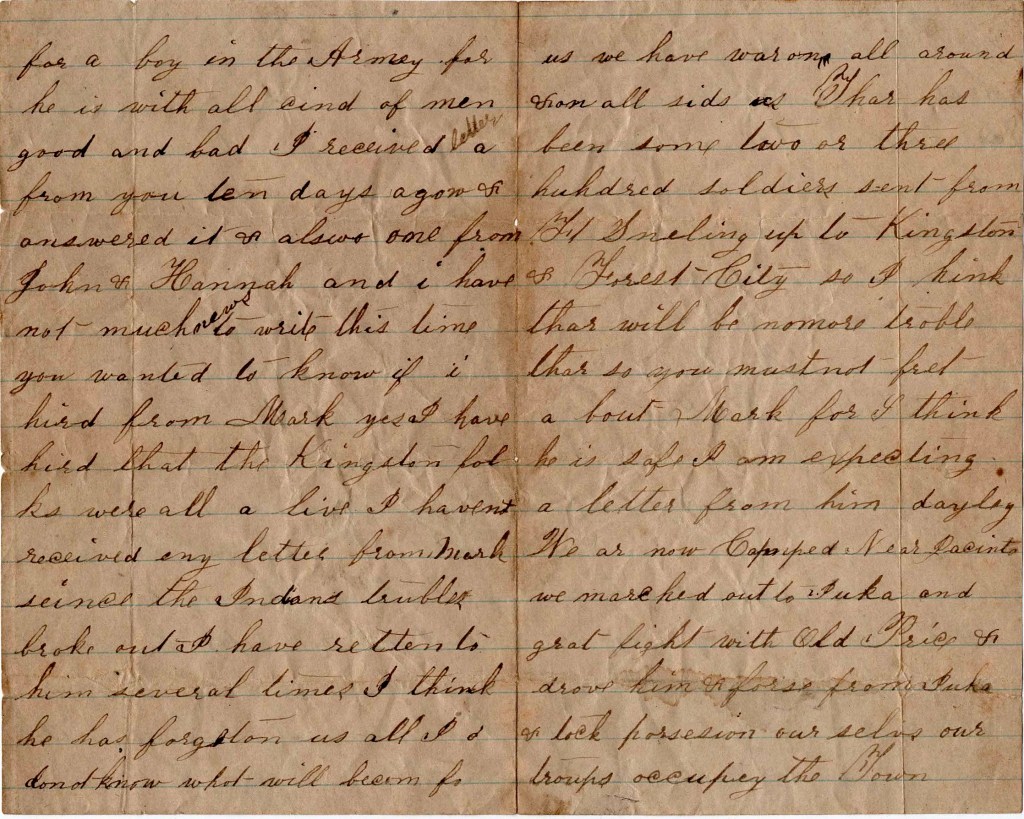 for a boy in the Armey for
he is with all cind of men
good and bad I received letter a
from you ten days agow &
answered it & alswo one from
John & Hannah and i have
not much news to write this time
you wanted to know if i
hird from Mark yes I have
hird that the Kingston fol
ks were all a live I havent
received eny letter from Mark
seince the Indans trubler
broke out I have retten to
him several times I think
he has forgoton us all I d
donot know what will becom fo
us we have war on all around
& on all sids us Thar has
been some two or three
huhdred soldiers sent from
Ft Sneling up to Kingston
& Forest City so I hink
thar will be nomore troble
thar so you must not fret
a bout Mark for I think
he is safe I am expecting
a letter from him dayley
We ar now Camped Near Jacinto
we marched out to Iuka and
grat fight with Old Price &
drove him & forse from Iuka
& tock porsesion our selvs our
troups occupey the Town